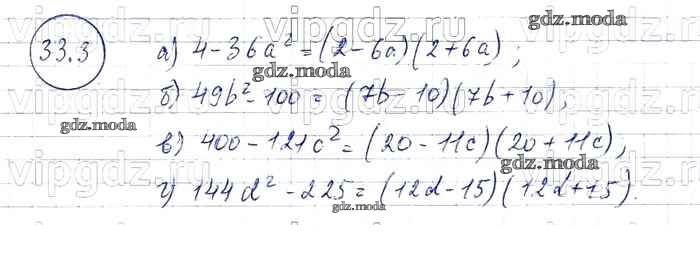 33.3
а) 4-36a² = (2-6a)(2+6a);
б) 49b²-100 = (7b-10)(7b+10);
в) 400-121c² = (20-11c)(20+11c);
г) 144d²-225 = (12d-15)(12d+15).
vipgdz.ru
gdz.moda
gdz.moda
gdz.moda
gdz.moda
gdz.moda
gdz.moda